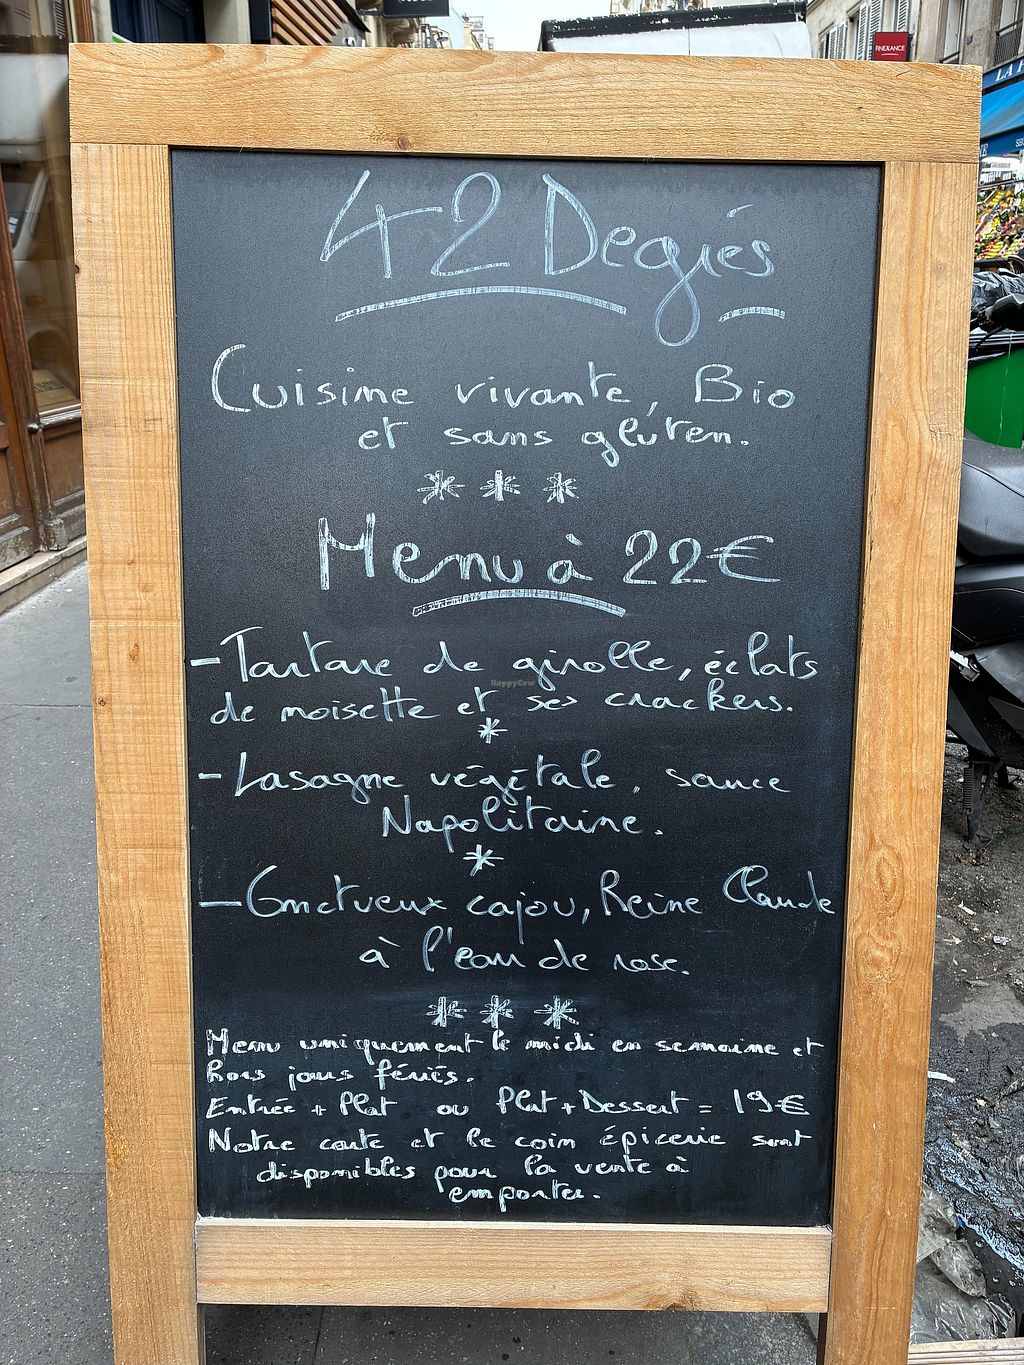 FINEXANCE
LA
42 Degrés
Cuisine vivante, Bio
et sans gluten.
* * *
Menu à 22€
- Tartare de girolle, éclats
de noisette et ses crackers.
*
- Lasagne végétale, sauce
Napolitaine.
*
- Onctueux cajou, Reine Claude
à l'eau de rose.
* * *
Menu uniquement le midi en semaine et
hors jours fériés.
Entrée + Plat ou Plat + Dessert = 19€
Notre carte et le coin épicerie sont
disponibles pour la vente à
emporter.
HappyCow